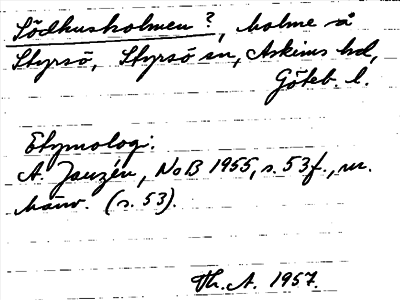 Södkusholmen?, holme å
Styrsö, Styrsö sn, Askims hd,
Göteb. l.
Etymolog:
A. Janzén, NoB 1955, s. 53 f., m.
hänv. (s. 53).
Th. A. 1957.